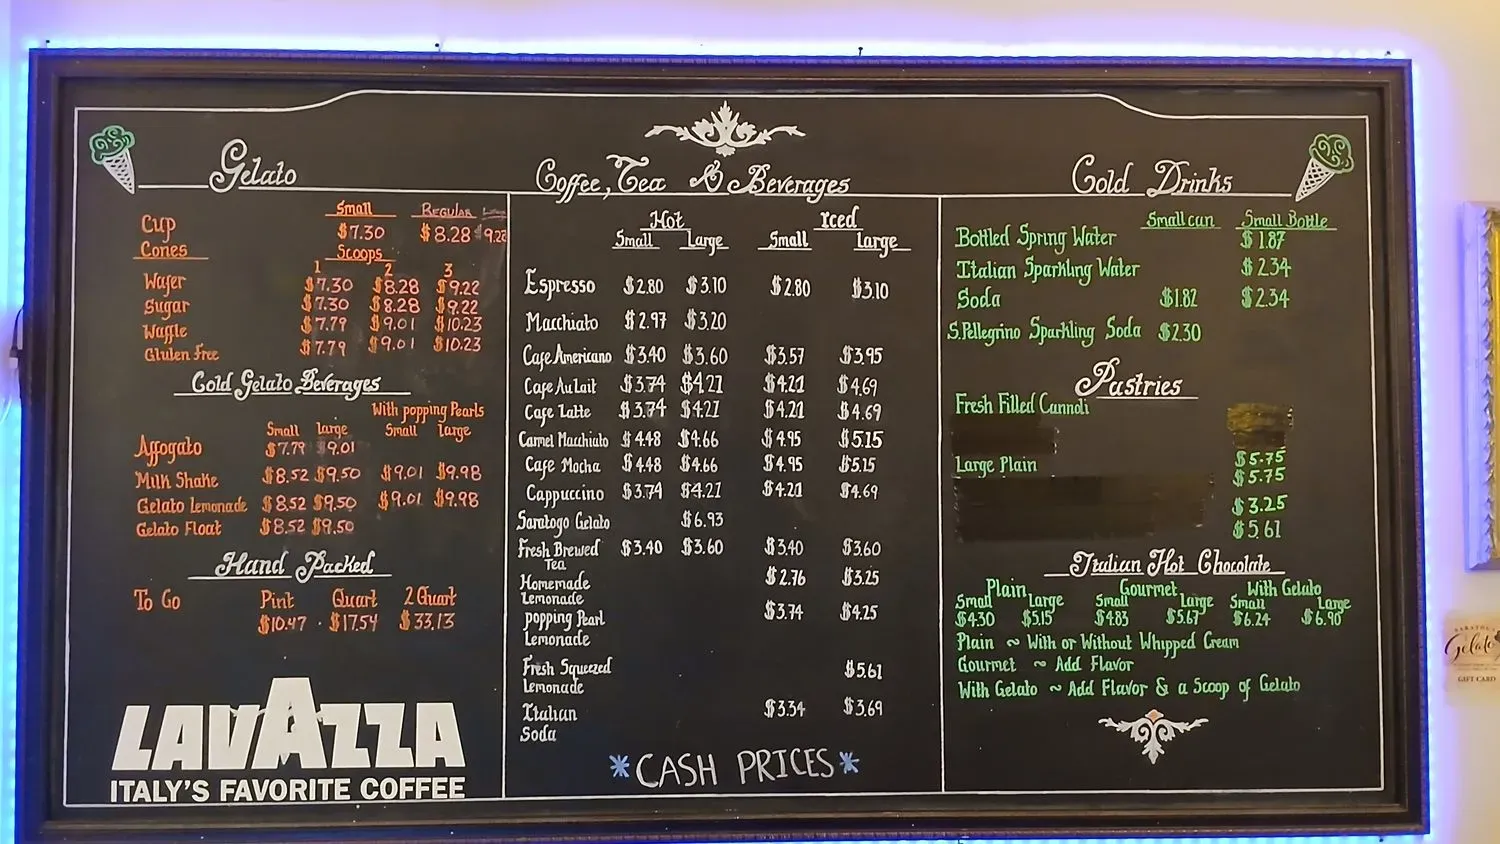 Gelato
Small Regular
Cup $7.30 $8.28 $9.22
Cones Scoops
1 2 3
Wafer $7.30 $8.28 $9.22
Sugar $7.30 $8.28 $9.22
Waffle $7.79 $9.01 $10.23
Gluten Free $7.79 $9.01 $10.23
Cold Gelato Beverages
With popping Pearls
Small large Small large
Affogato $7.79 $9.01
Milk Shake $8.52 $9.50 $9.01 $9.98
Gelato Lemonade $8.52 $9.50 $9.01 $9.98
Gelato Float $8.52 $9.50
Hand Packed
To Go Pint Quart 2 Quart
$10.47 $17.54 $33.13
LAVAZZA
ITALY'S FAVORITE COFFEE
Coffee, Tea & Beverages
Hot Iced
Small Large Small Large
Espresso $2.80 $3.10 $2.80 $3.10
Macchiato $2.97 $3.20
Cafe Americano $3.40 $3.60 $3.57 $3.95
Cafe Au Lait $3.74 $4.21 $4.21 $4.69
Cafe Latte $3.74 $4.21 $4.21 $4.69
Carmel Macchiato $4.48 $4.66 $4.95 $5.15
Cafe Mocha $4.48 $4.66 $4.95 $5.15
Cappuccino $3.74 $4.21 $4.21 $4.69
Saratogo Gelato $6.93
Fresh Brewed $3.40 $3.60 $3.40 $3.60
Tea
Homemade $2.76 $3.25
Lemonade
popping Pearl $3.74 $4.25
Lemonade
Fresh Squeezed $5.61
Lemonade
Italian $3.34 $3.69
Soda
*CASH PRICES*
Cold Drinks
Small can Small Bottle
Bottled Spring Water $1.87
Italian Sparkling Water $2.34
Soda $1.82 $2.34
S.Pellegrino Sparkling Soda $2.30
Pastries
Fresh Filled Cannoli
Large Plain $5.75
$5.75
$3.25
$5.61
Italian Hot Chocolate
Plain Gourmet With Gelato
Small Large Small Large Small Large
$4.30 $5.15 $4.83 $5.67 $6.24 $6.90
Plain ~ With or Without Whipped Cream
Gourmet ~ Add Flavor
With Gelato ~ Add Flavor & a Scoop of Gelato
Gelato
GIFT CARD